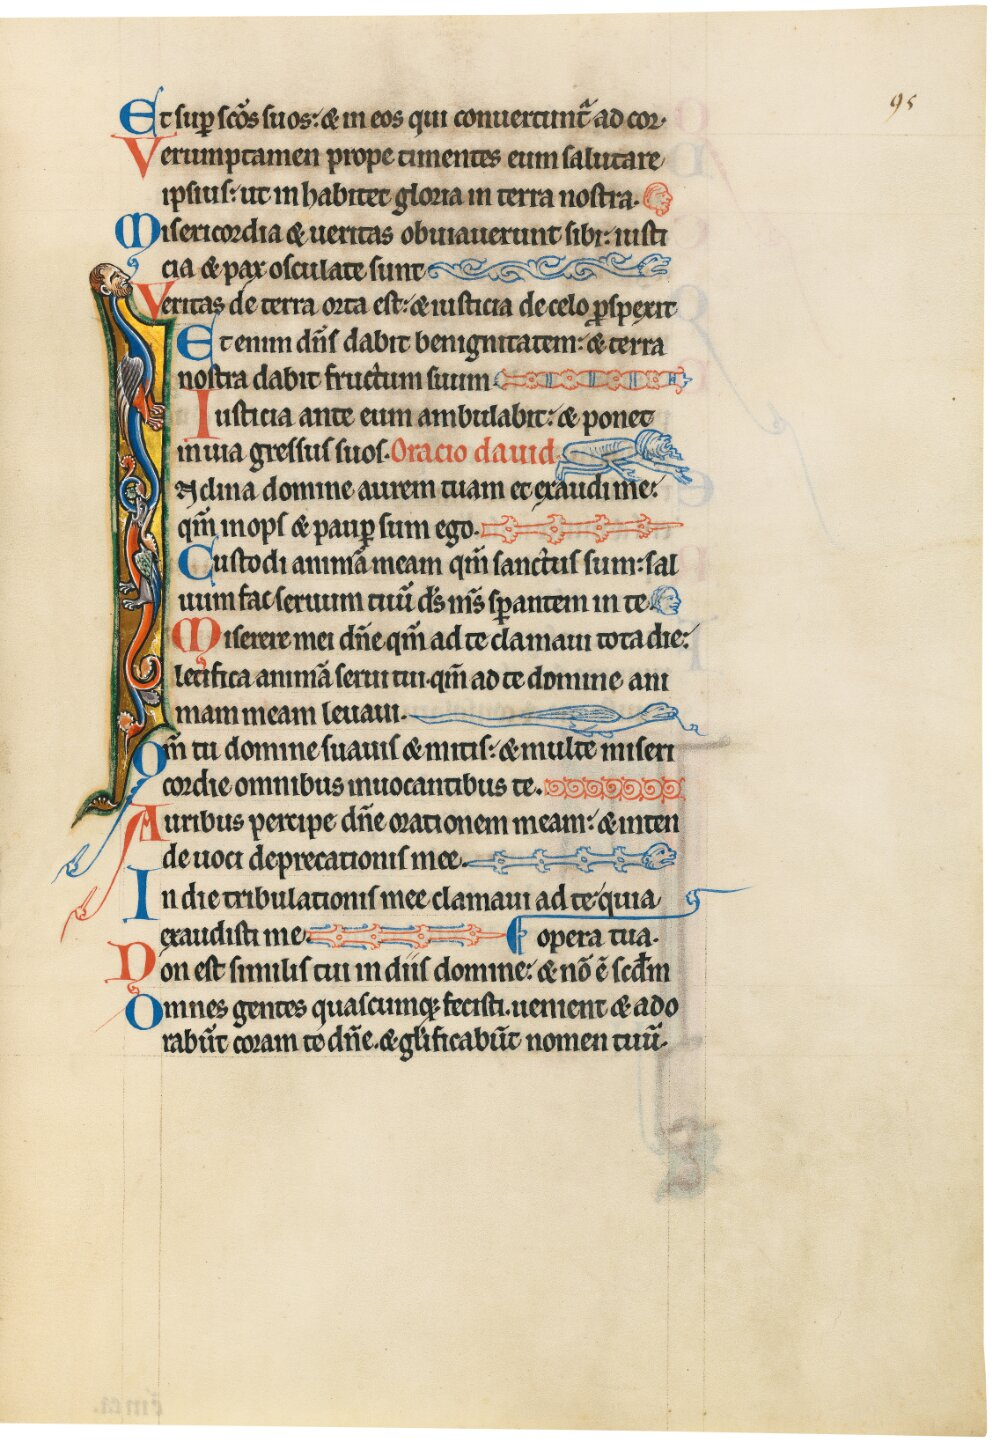 95
Et sup scōs suos: & in eos qui conuertunt̄ ad cor.
Verumptamen prope timentes eum salutare
ipsius: ut in habitet gloria in terra nostra.
Misericordia & ueritas obuiauerunt sibi: iusti
cia & pax osculate sunt
Veritas de terra orta est: & iusticia de celo pspexit
Et enim dn̄s dabit benignitatem: & terra
nostra dabit fructum suum
Iusticia ante eum ambulabit: & ponet
in uia gressus suos. Oracio dauid
Inclina domine aurem tuam et exaudi me:
qm̄ inops & paup sum ego.
Custodi animā meam qm̄ sanctus sum: sal
uum fac seruum tuū ds̄ ms̄ spantem in te
Miserere mei dn̄e qm̄ ad te clamaui tota die:
letifica animā serui tui. qm̄ ad te domine ani
mam meam leuaui.
Qm̄ tu domine suauis & mitis: & multe miseri
cordie omnibus inuocantibus te.
Auribus percipe dn̄e orationem meam: & inten
de uoci deprecationis mee.
In die tribulationis mee clamaui ad te: quia
exaudisti me opera tua.
Non est similis tui in diis domine: & nō ē scdm̄
Omnes gentes quascumq; fecisti. uenient & ado
rabūt coram te dn̄e. & gl̄ificabūt nomen tuū.